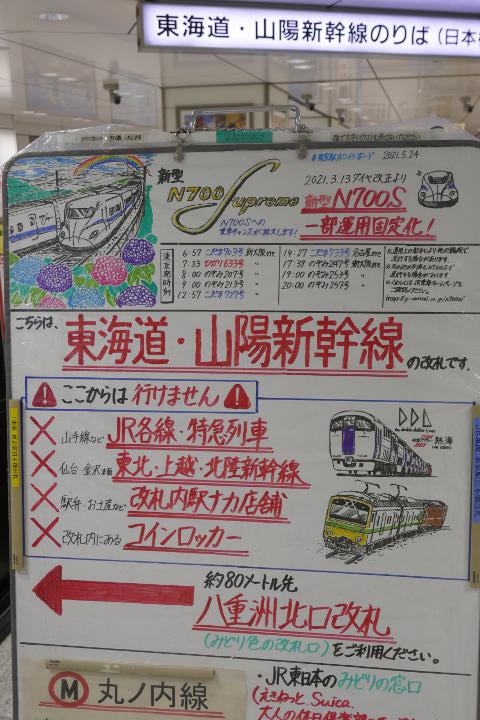 東海道・山陽新幹線のりば（日本
#東京駅ホワイトボード 2021.5.24
新型
N700Supreme
N700Sへの
乗車チャンスが拡大します!
2021.3.13ダイヤ改正より
新型N700S
一部運用固定化!
東京発時刻
6:57 こだま703号 新大阪ゆき
7:33 ひかり633号 〃
8:00 のぞみ207号 〃
9:00 のぞみ213号 〃
12:57 こだま727号
14:27 こだま733号 名古屋ゆき
17:39 のぞみ247号 新大阪ゆき
19:00 のぞみ253号 〃
20:00 のぞみ257号 〃
こちらは、
東海道・山陽新幹線の改札です。
ここからは行けません
山手線など JR各線・特急列車
仙台・金沢方面 東北・上越・北陸新幹線
駅弁・お土産など 改札内駅ナカ店舗
改札内にある コインロッカー
熱海
約80メートル先
八重洲北口改札
(みどり色の改札口)をご利用ください。
M 丸ノ内線
・JR東日本のみどりの窓口
(えきねっと、Suica、